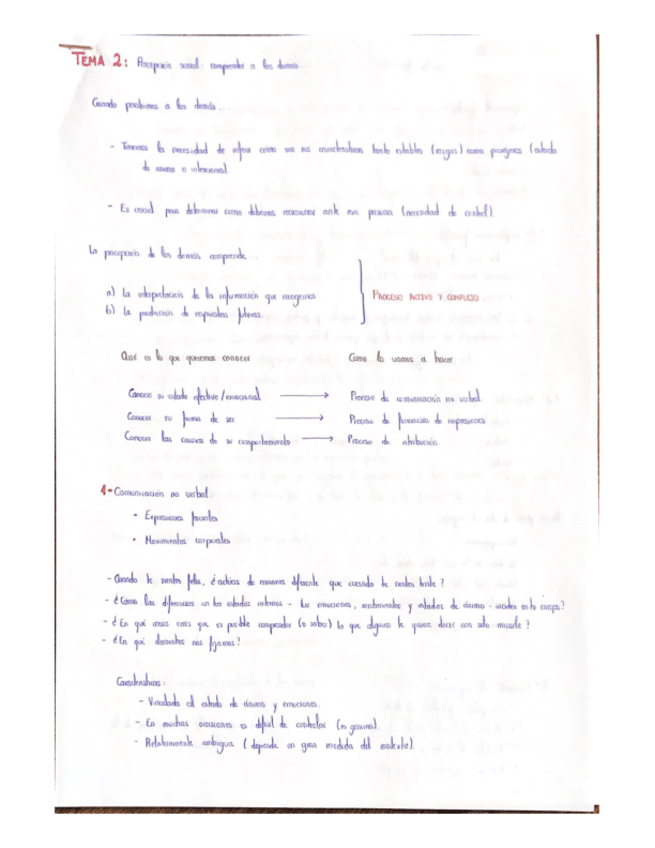 TEMA 2: Percepción social: comprender a los demás
Cuando percibimos a los demás...
- Tenemos la necesidad de inferir cómo son sus características tanto estables (rasgos) como pasajeras (estado
de ánimo o intenciones)
- Es crucial para determinar como debemos reaccionar ante esa persona (necesidad de control).
La percepción de los demás comprende...
a) La interpretación de la información que recogemos
b) La predicción de respuestas futuras.
PROCESO ACTIVO Y COMPLEJO
Qué es lo que queremos conocer
Como lo vamos a hacer
Conocer su estado afectivo/emocional → Proceso de comunicación no verbal
Conocer su forma de ser → Proceso de formación de impresiones
Conocer las causas de su comportamiento → Proceso de atribución.
1- Comunicación no verbal.
- Expresiones faciales
- Movimientos corporales
- Cuando te sientes feliz, ¿actúas de manera diferente que cuando te sientes triste?
- ¿Cómo las diferencias en los estados internos - tus emociones, sentimientos y estados de ánimo - inciden en tu cuerpo?
- ¿En qué casos crees que es posible comprender (o saber) lo que alguien te quiere decir con solo mirarle?
- ¿En qué elementos nos fijamos?
Características:
- Vinculada al estado de ánimo y emociones.
- En muchas ocasiones es difícil de controlar (en general).
- Relativamente ambigua (depende en gran medida del contexto).